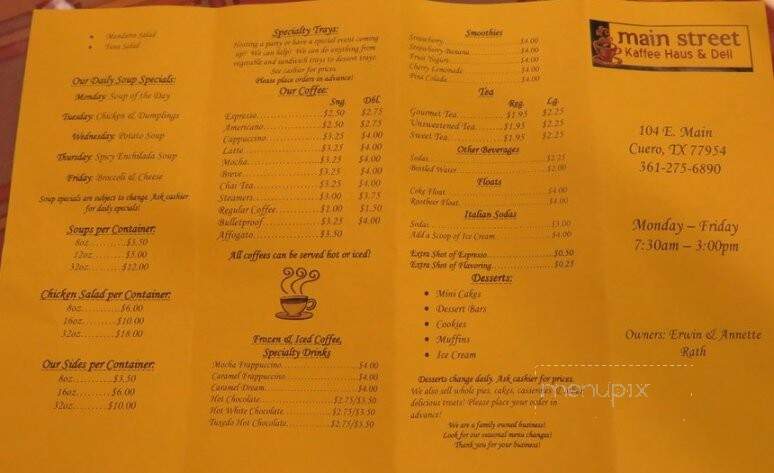 • Mandarin Salad
• Tuna Salad
Our Daily Soup Specials:
Monday: Soup of the Day
Tuesday: Chicken & Dumplings
Wednesday: Potato Soup
Thursday: Spicy Enchilada Soup
Friday: Broccoli & Cheese
Soup specials are subject to change. Ask cashier
for daily specials!
Soups per Container:
8oz.........$3.50
12oz.........$5.00
32oz.........$12.00
Chicken Salad per Container:
8oz.........$6.00
16oz.........$10.00
32oz.........$18.00
Our Sides per Container:
8oz.........$3.50
16oz.........$6.00
32oz.........$10.00
Specialty Trays:
Hosting a party or have a special event coming
up? We can help! We can do anything from
vegetable and sandwich trays to dessert trays.
See cashier for prices.
Please place orders in advance!
Our Coffee:
Sng. Dbl.
Espresso.........$2.50 $2.75
Americano.........$2.50 $2.75
Cappuccino.........$3.25 $4.00
Latte.........$3.25 $4.00
Mocha.........$3.25 $4.00
Breve.........$3.25 $4.00
Chai Tea.........$3.25 $4.00
Steamers.........$3.00 $3.75
Regular Coffee.........$1.00 $1.50
Bulletproof.........$3.25 $4.00
Affogato.........$3.50
All coffees can be served hot or iced!
Frozen & Iced Coffee,
Specialty Drinks
Mocha Frappuccino.........$4.00
Caramel Frappuccino.........$4.00
Caramel Dream.........$4.00
Hot Chocolate.........$2.75/$3.50
Hot White Chocolate.........$2.75/$3.50
Tuxedo Hot Chocolate.........$2.75/$3.50
Smoothies
Strawberry.........$4.00
Strawberry Banana.........$4.00
Fruit Yogurt.........$4.00
Cherry Lemonade.........$4.00
Pina Colada.........$4.00
Tea
Reg. Lg.
Gourmet Tea.........$1.95 $2.25
Unsweetened Tea.........$1.95 $2.25
Sweet Tea.........$1.95 $2.25
Other Beverages
Sodas.........$2.25
Bottled Water.........$2.00
Floats
Coke Float.........$4.00
Rootbeer Float.........$4.00
Italian Sodas
Sodas.........$3.00
Add a Scoop of Ice Cream.........$4.00
Extra Shot of Espresso.........$0.50
Extra Shot of Flavoring.........$0.25
Desserts:
• Mini Cakes
• Dessert Bars
• Cookies
• Muffins
• Ice Cream
Desserts change daily. Ask cashier for prices.
We also sell whole pies, cakes,
delicious treats! Please place your order in
advance!
We are a family owned business!
Look for our seasonal menu changes!
Thank you for your business!
main street
Kaffee Haus & Deli
104 E. Main
Cuero, TX 77954
361-275-6890
Monday – Friday
7:30am – 3:00pm
Owners: Erwin & Annette
Rath
menupix